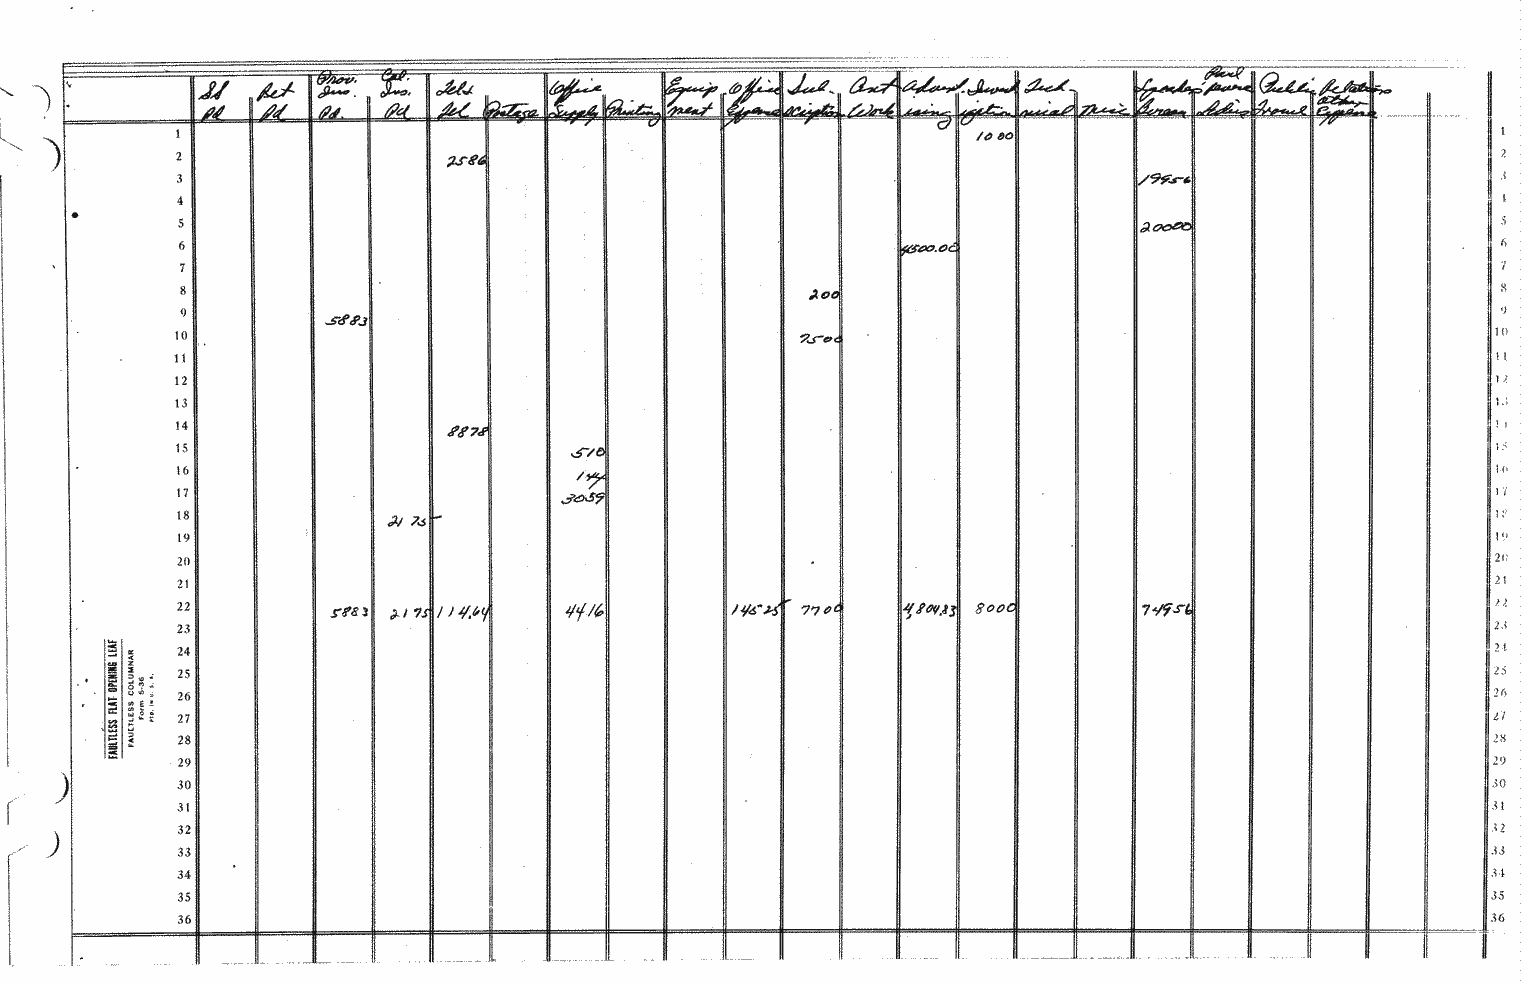 SS Ret Prov. Ins. Cal. Ins. Tel & Office Equip Office Sub- Art Advert- Tech- Speakers Public Relations
Pd Pd Pd Pd Tel Postage Supply Printing ment Expense scription Work ising nical Misc Bureau Travel Other Expense
1 10 00 1
2 2586 2
3 19956 3
4 4
5 20000 5
6 4500.00 6
7 7
8 200 8
9 5883 9
10 7500 10
11 11
12 12
13 13
14 8878 14
15 510 15
16 144 16
17 3059 17
18 2175 18
19 19
20 20
21 21
22 5883 2175 114.64 4416 14525 7700 4,804.83 8000 74956 22
23 23
24 24
25 25
26 26
27 27
28 28
29 29
30 30
31 31
32 32
33 33
34 34
35 35
36 36
FAULTLESS FLAT OPENING LEAF
FAULTLESS COLUMNAR
Form 5-36
PTD. IN U. S. A.